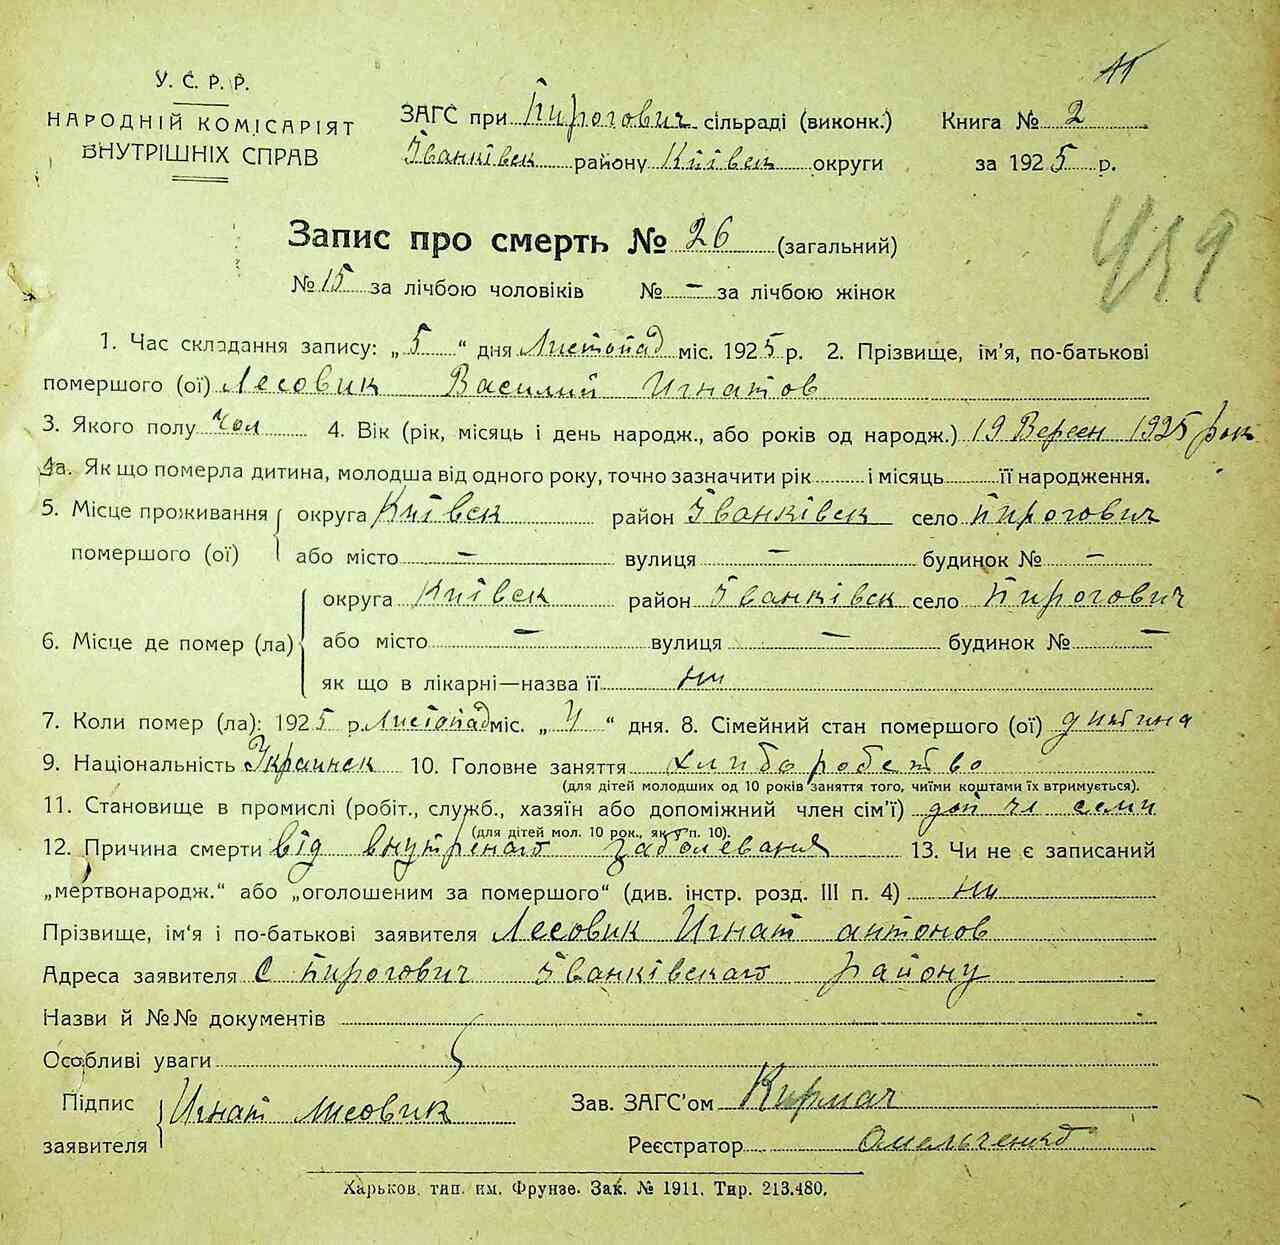 У. С. Р. Р.
НАРОДНІЙ КОМІСАРІЯТ
ВНУТРІШНІХ СПРАВ
ЗАГС при Пирогович сільраді (виконк.)
Іванківск району Київск округи
Книга № 2
за 1925 р.
Запис про смерть № 26 (загальний)
№ 15 за лічбою чоловіків № – за лічбою жінок
1. Час складання запису: „5“ дня Листопад міс. 1925 р. 2. Прізвище, ім'я, по-батькові
помершого (ої) Лесовик Василий Игнатов
3. Якого полу Чол 4. Вік (рік, місяць і день народж., або років од народж.) 19 Вересн 1925 рок
4а. Як що померла дитина, молодша від одного року, точно зазначити рік и місяць її народження.
5. Місце проживання помершого (ої) округа Київск район Іванківск село Пирогович
або місто – вулиця – будинок № –
6. Місце де помер (ла) округа Київск район Іванківск село Пирогович
або місто – вулиця – будинок № –
як що в лікарні—назва її ни
7. Коли помер (ла): 1925 р. Листопад міс. „4“ дня. 8. Сімейний стан помершого (ої) дитина
9. Національність Украинск 10. Головне заняття хлиборобство
(для дітей молодших од 10 років заняття того, чиїми коштами їх втримується).
11. Становище в промислі (робіт., служб., хазяїн або допоміжний член сім'ї) доп чл семи
(для дітей мол. 10 рок., як у п. 10).
12. Причина смерти від внутренаго заболевания 13. Чи не є записаний
„мертвонародж.“ або „оголошеним за помершого“ (див. інстр. розд. III п. 4) ни
Прізвище, ім'я і по-батькові заявителя Лесовик Игнат антонов
Адреса заявителя С Пирогович Іванківскаго району
Назви й №№ документів
Особливі уваги
Підпис заявителя Игнат лисовик
Зав. ЗАГС'ом Кирмач
Реєстратор Омельченко
Харьков. тип. им. Фрунзе. Зак. № 1911. Тир. 213.480.